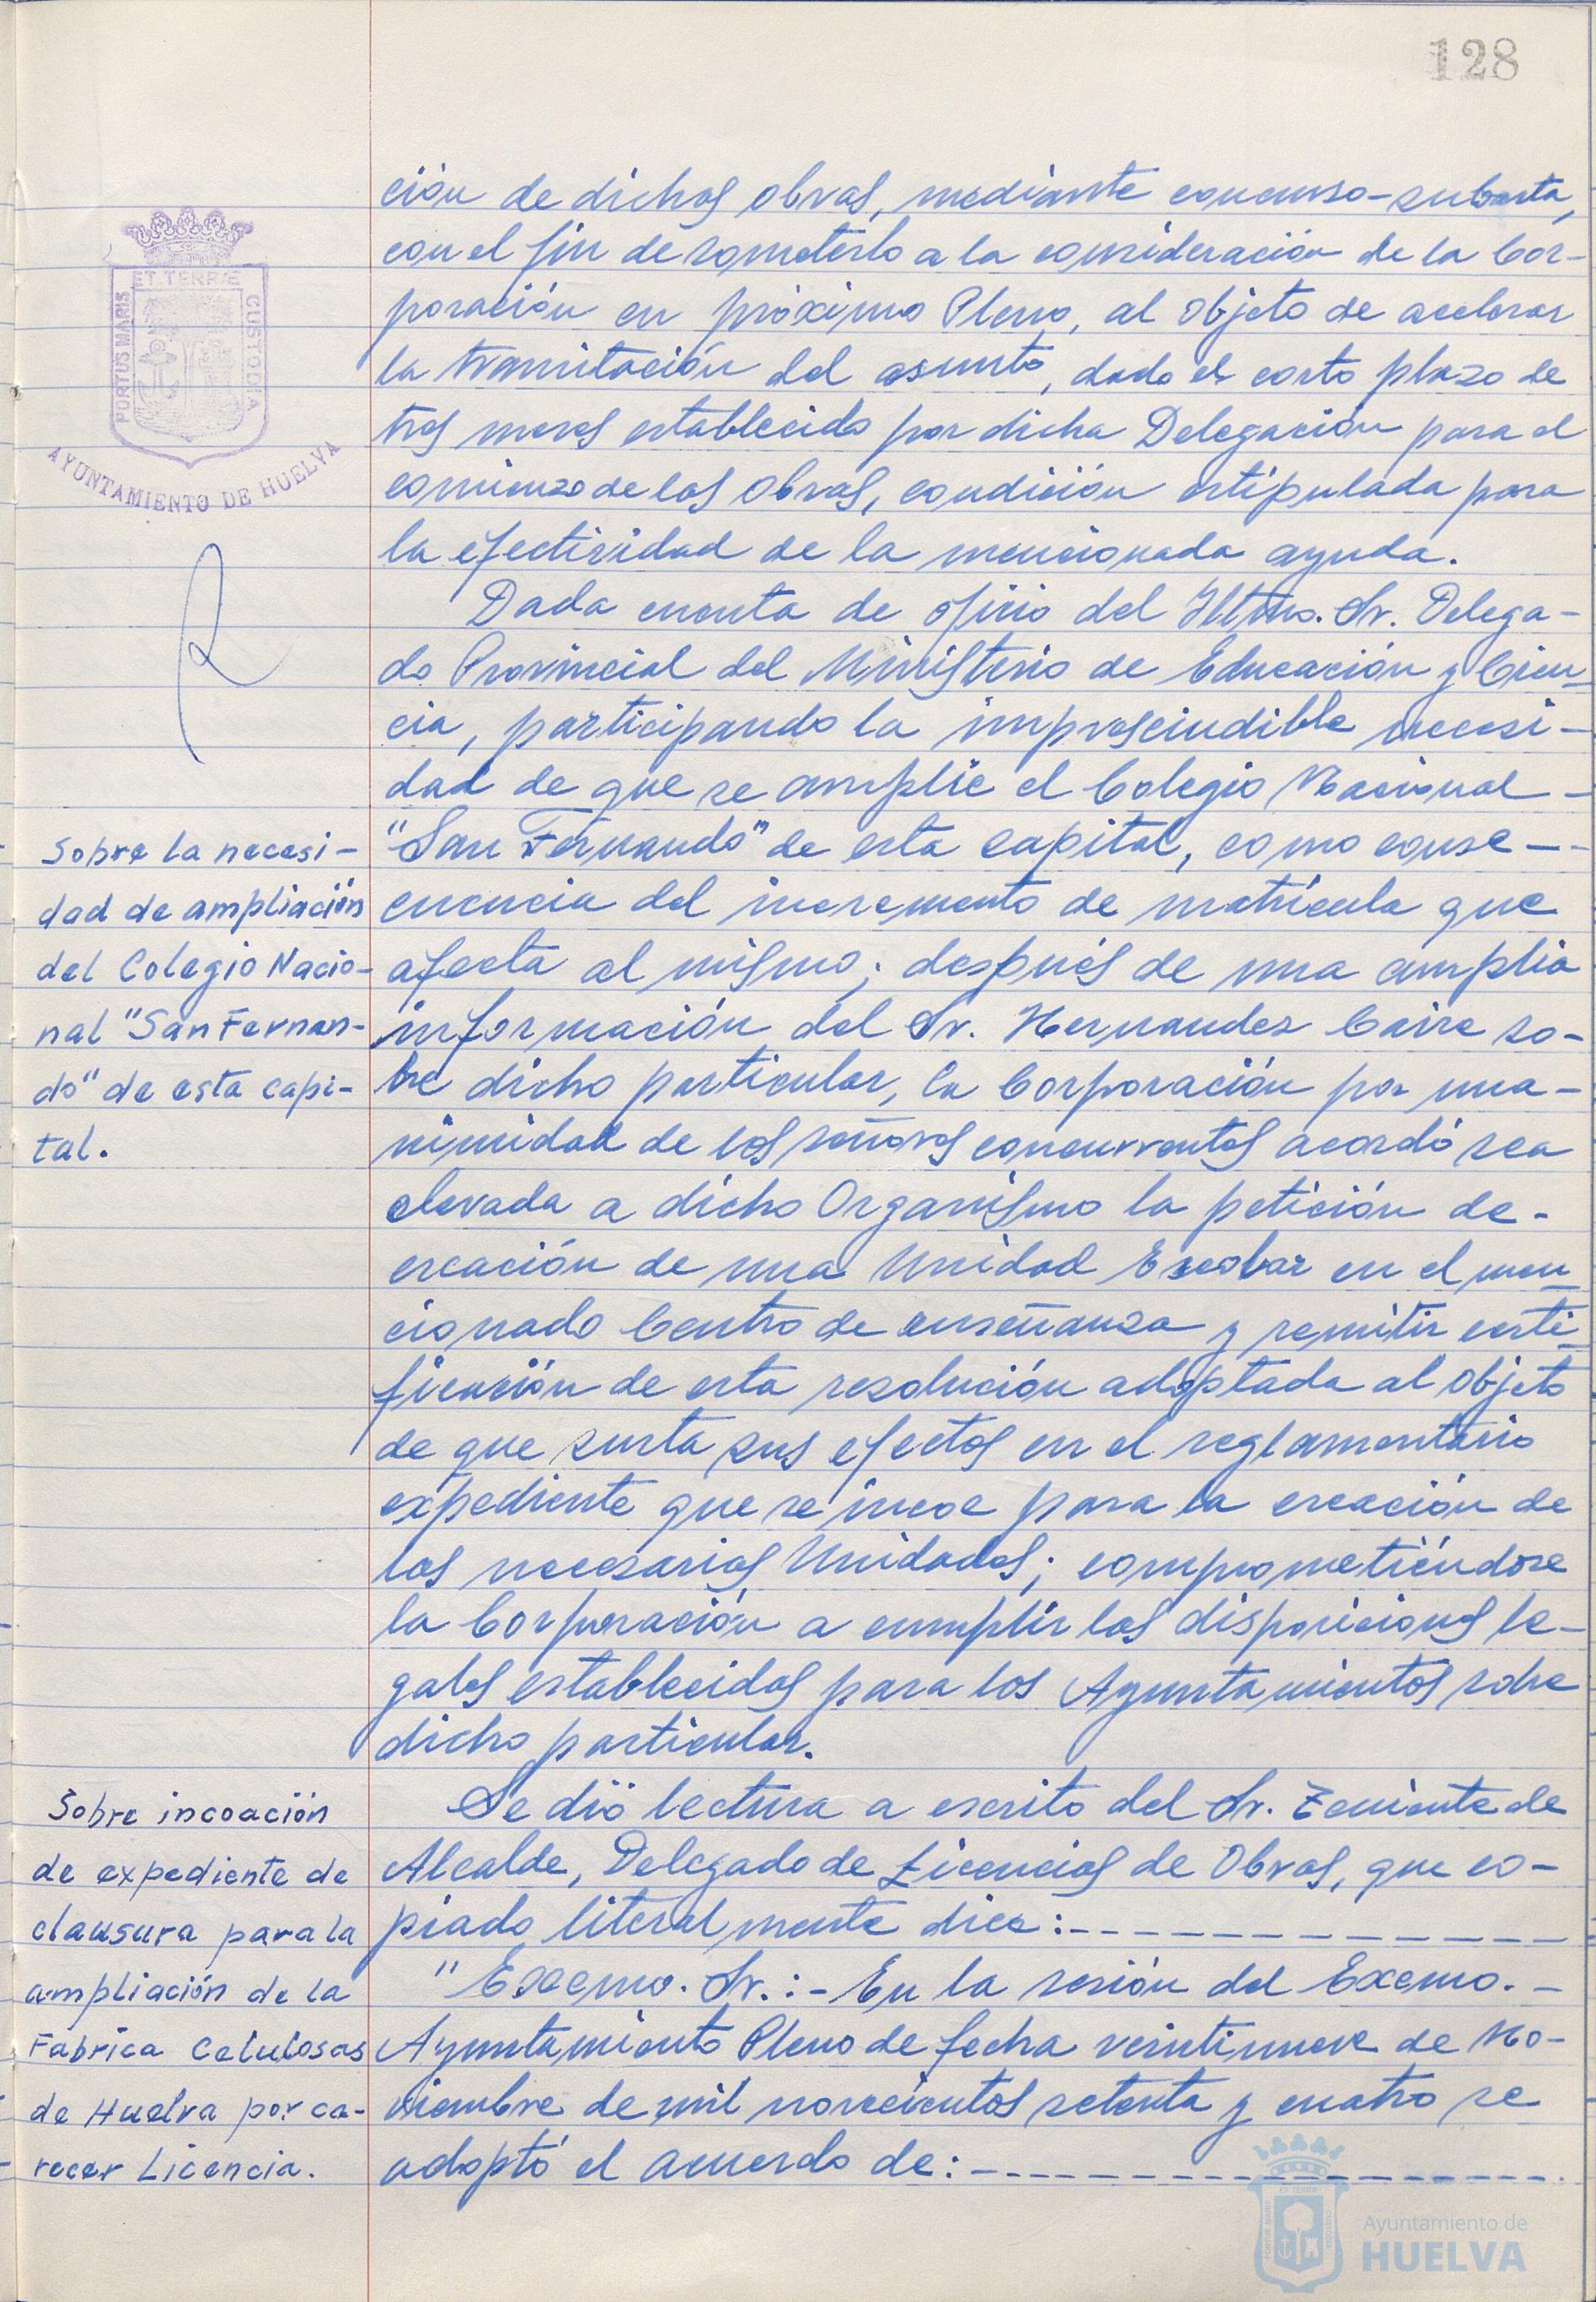 128
ción de dichas obras, mediante concurso-subasta,
con el fin de someterlo a la consideración de la Cor-
poración en próximo Pleno, al objeto de acelerar
la tramitación del asunto, dado el corto plazo de
tres meses establecido por dicha Delegación para el
comienzo de las obras, condición estipulada para
la efectividad de la mencionada ayuda.
Dada cuenta de oficio del Iltmo. Sr. Delega-
do Provincial del Ministerio de Educación y Cien-
cia, participando la imprescindible necesi-
dad de que se amplie el Colegio Nacional -
"San Fernando" de esta capital, como conse--
cuencia del incremento de matrícula que
afecta al mismo; después de una amplia
información del Sr. Hernandez Caire so-
bre dicho particular, la Corporación por una-
nimidad de los señores concurrentes acordó sea
elevada a dicho Organismo la petición de-
creación de una Unidad Escolar en el men-
cionado Centro de enseñanza y remitir certi-
ficación de esta resolución adoptada al objeto
de que surta sus efectos en el reglamentario
expediente que se incoe para la creación de
las necesarias Unidades; comprometiéndose
la Corporación a cumplir las disposiciones le-
gales establecidas para los Ayuntamientos sobre
dicho particular.
Se dió lectura a escrito del Sr. Teniente de
Alcalde, Delegado de Licencias de Obras, que co-
piado literalmente dice:-------------
"Excmo. Sr.:- En la sesión del Excmo. -
Ayuntamiento Pleno de fecha veintinueve de No-
viembre de mil novecientos setenta y cuatro se
adoptó el acuerdo de:-----------------
ET TERRÆ
PORTUS MARIS
CUSTODIA
AYUNTAMIENTO DE HUELVA
Sobre la necesi-
dad de ampliación
del Colegio Nacio-
nal "San Fernan-
do" de esta capi-
tal.
Sobre incoación
de expediente de
clausura para la
ampliación de la
Fabrica Celulosas
de Huelva por ca-
recer Licencia.
Ayuntamiento de
HUELVA